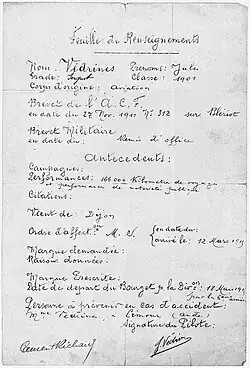 Feuille de Renseignements
Nom: Védrines Prénoms: Jules
Grade: Classe: 1901
Corps d'origine: aviation
Brevet de l'A.C.F.
en date du 27 Nov. 1911 N° 312 sur Blériot
Brevet Militaire
en date du: Remis d'office
Antécédents:
Campagnes:
Performances: 166 000 Kilomètres de voyage
et performances de notoriété publique
Citations:
Vient de: Dijon
Ordre d'affect.on M. N. en date du:
arrivé le: 12 Mars
Marque demandée:
Raisons données:
Marque Prescrite:
Date de départ du Bourget p. la Div.on: 18 Mars
Personne à prévenir en cas d'accident:
Mme Védrines à Limoux (Aude)
Signature du Pilote:
J. Védrines